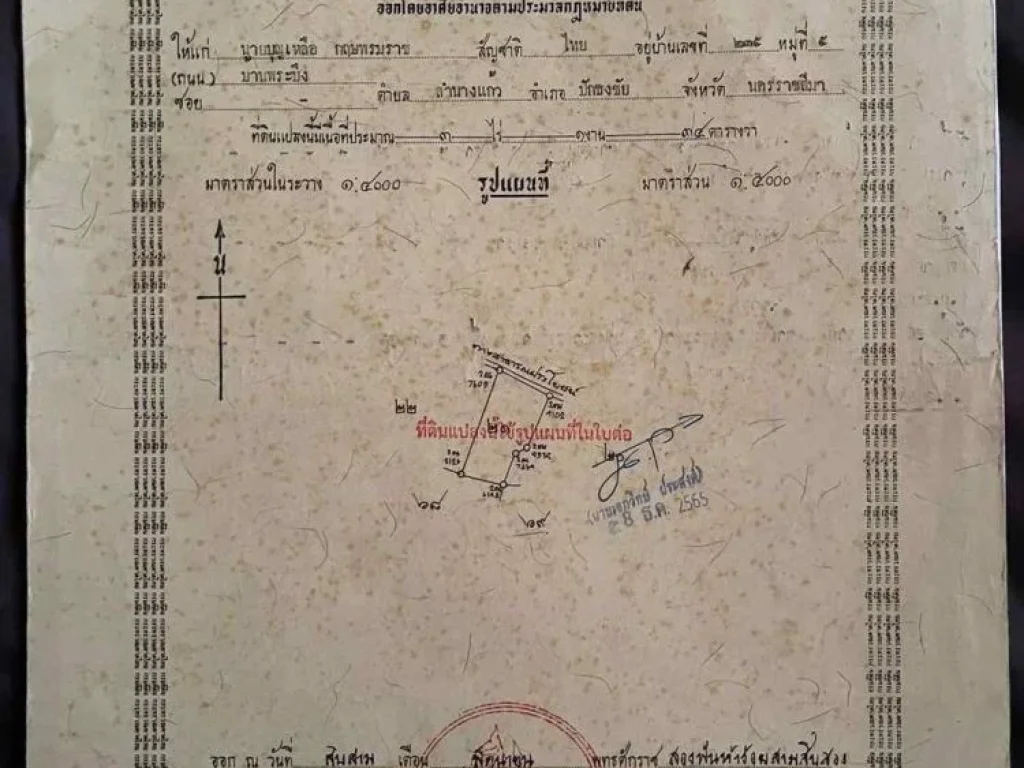 ออกโดยอาศัยอำนาจตามประมวลกฎหมายที่ดิน
ให้แก่ นายบุญเหลือ กฤษพรมราช สัญชาติ ไทย อยู่บ้านเลขที่ ๒๓๕ หมู่ที่ ๕
(ถนน) บ้านพระบึง
ซอย - ตำบล ลำนางแก้ว อำเภอ ปักธงชัย จังหวัด นครราชสีมา
ที่ดินแปลงนี้มีเนื้อที่ประมาณ ๓ ไร่ ๑ งาน ๓๔ ตารางวา
มาตราส่วนในระวาง ๑:๔๐๐๐ รูปแผนที่ มาตราส่วน ๑:๕๐๐๐
น
ทางสาธารณประโยชน์
๒๒
๒๑
ที่ดินแปลงนี้ใช้รูปแผนที่ในใบต่อ
๖๘
๖๙
28 ธ.ค. 2565
ออก ณ วันที่ สิบสาม เดือน มิถุนายน พุทธศักราช สองพันห้าร้อยสามสิบสอง